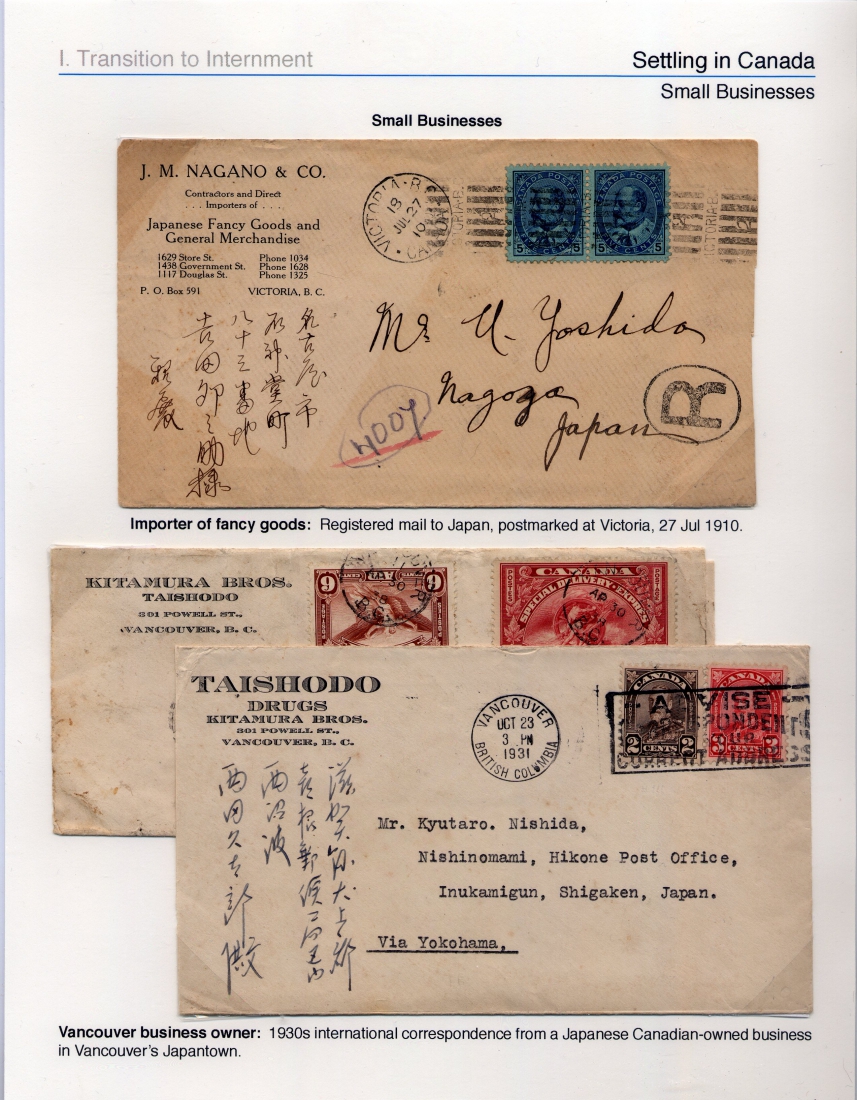 I. Transition to Internment
Settling in Canada
Small Businesses
Small Businesses
J. M. NAGANO & CO.
Contractors and Direct
. . . Importers of . . .
Japanese Fancy Goods and
General Merchandise
1629 Store St. Phone 1034
1438 Government St. Phone 1628
1117 Douglas St. Phone 1325
P. O. Box 591 VICTORIA, B. C.
VICTORIA·B.C.
18
JUL 27
10
CANADA
CANADA POSTAGE
5 5
CANADA POSTAGE
5 5
Mr U. Yoshida
Nagoya
Japan
R
4007
名古屋市
石神堂町
八十三番地
吉田卯之助様
Importer of fancy goods: Registered mail to Japan, postmarked at Victoria, 27 Jul 1910.
KITAMURA BROS.
TAISHODO
301 POWELL ST.,
VANCOUVER, B. C.
6 6
AP 30
CANADA
SPECIAL DELIVERY EXPRES
AP 30
TAISHODO
DRUGS
KITAMURA BROS.
301 POWELL ST.,
VANCOUVER, B. C.
VANCOUVER
OCT 23
3 PM
1931
BRITISH COLUMBIA
CANADA
2 CENTS 2
CANADA
3 CENTS 3
ADVISE
CORRESPONDENTS
CURRENT ADDRESS
滋賀県犬上郡
彦根郵便局区内
西沼波
西田久太郎
Mr. Kyutaro. Nishida,
Nishinomami, Hikone Post Office,
Inukamigun, Shigaken, Japan.
Via Yokohama,
Vancouver business owner: 1930s international correspondence from a Japanese Canadian-owned business
in Vancouver's Japantown.